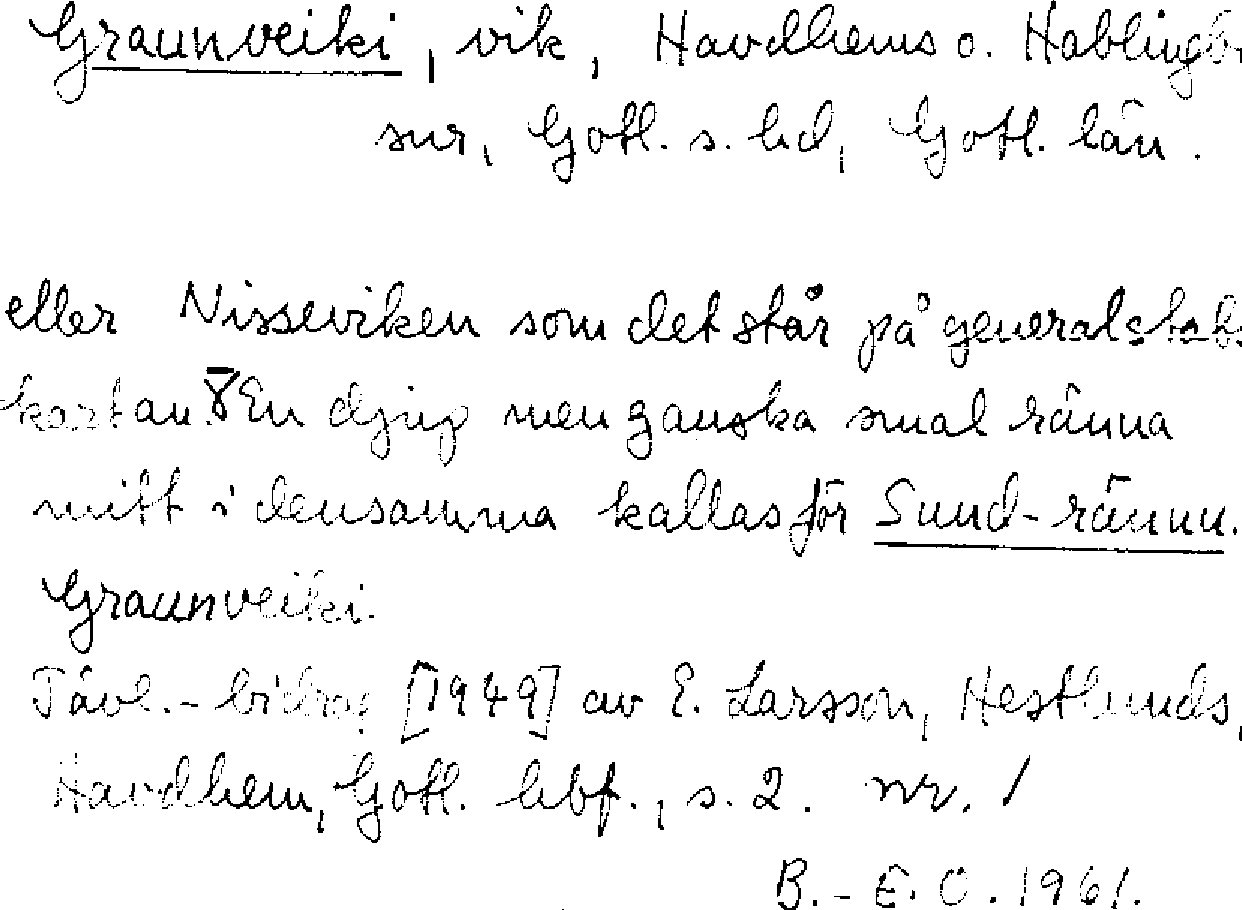 Graunveiki, vik, Havdhems o. Hablingbo
snr, Gotl. s. hd, Gotl. län.
eller Nisseviken som det står på generalstabs
kartan. En djup men ganska smal ränna
mitt i densamma kallas för Sund-rännu.
Graunveiki.
Tävl.-bidrag [1949] av E. Larsson, Hestlunds,
Havdhem, Gotl. hbf., s. 2. nr. 1
B.-E. O. 1961.